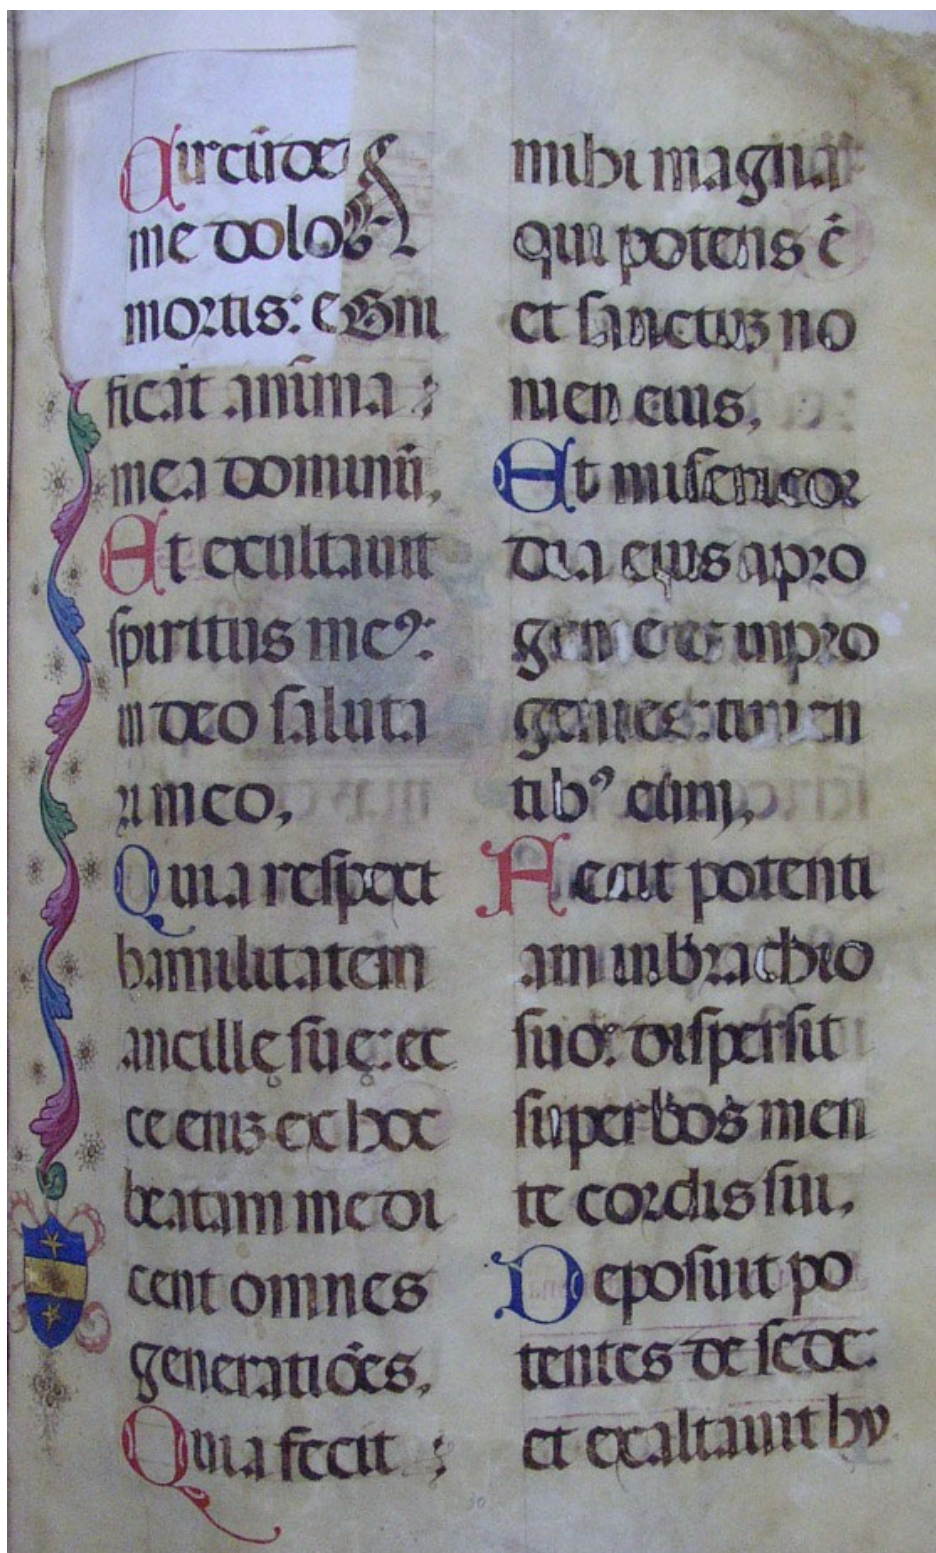 me dolo
mortis: e Gni
ficat anima
mea dominū.
Et exultauit
spiritus meꝰ:
in deo saluta
ri meo.
Quia respexit
humilitatem
ancillę suę: ec
ce eniʒ ex hoc
beatam me di
cent omnes
generatiōes.
Quia fecit
mihi magna
qui potens ē
et sanctuʒ no
men eius.
Et misericor
dia eius a pro
genie in pro
genies: timen
tibꝰ eum.
Fecit potenti
am in brachio
suo: dispersit
superbos men
te cordis sui.
Deposuit po
tentes de sede:
et exaltauit hu